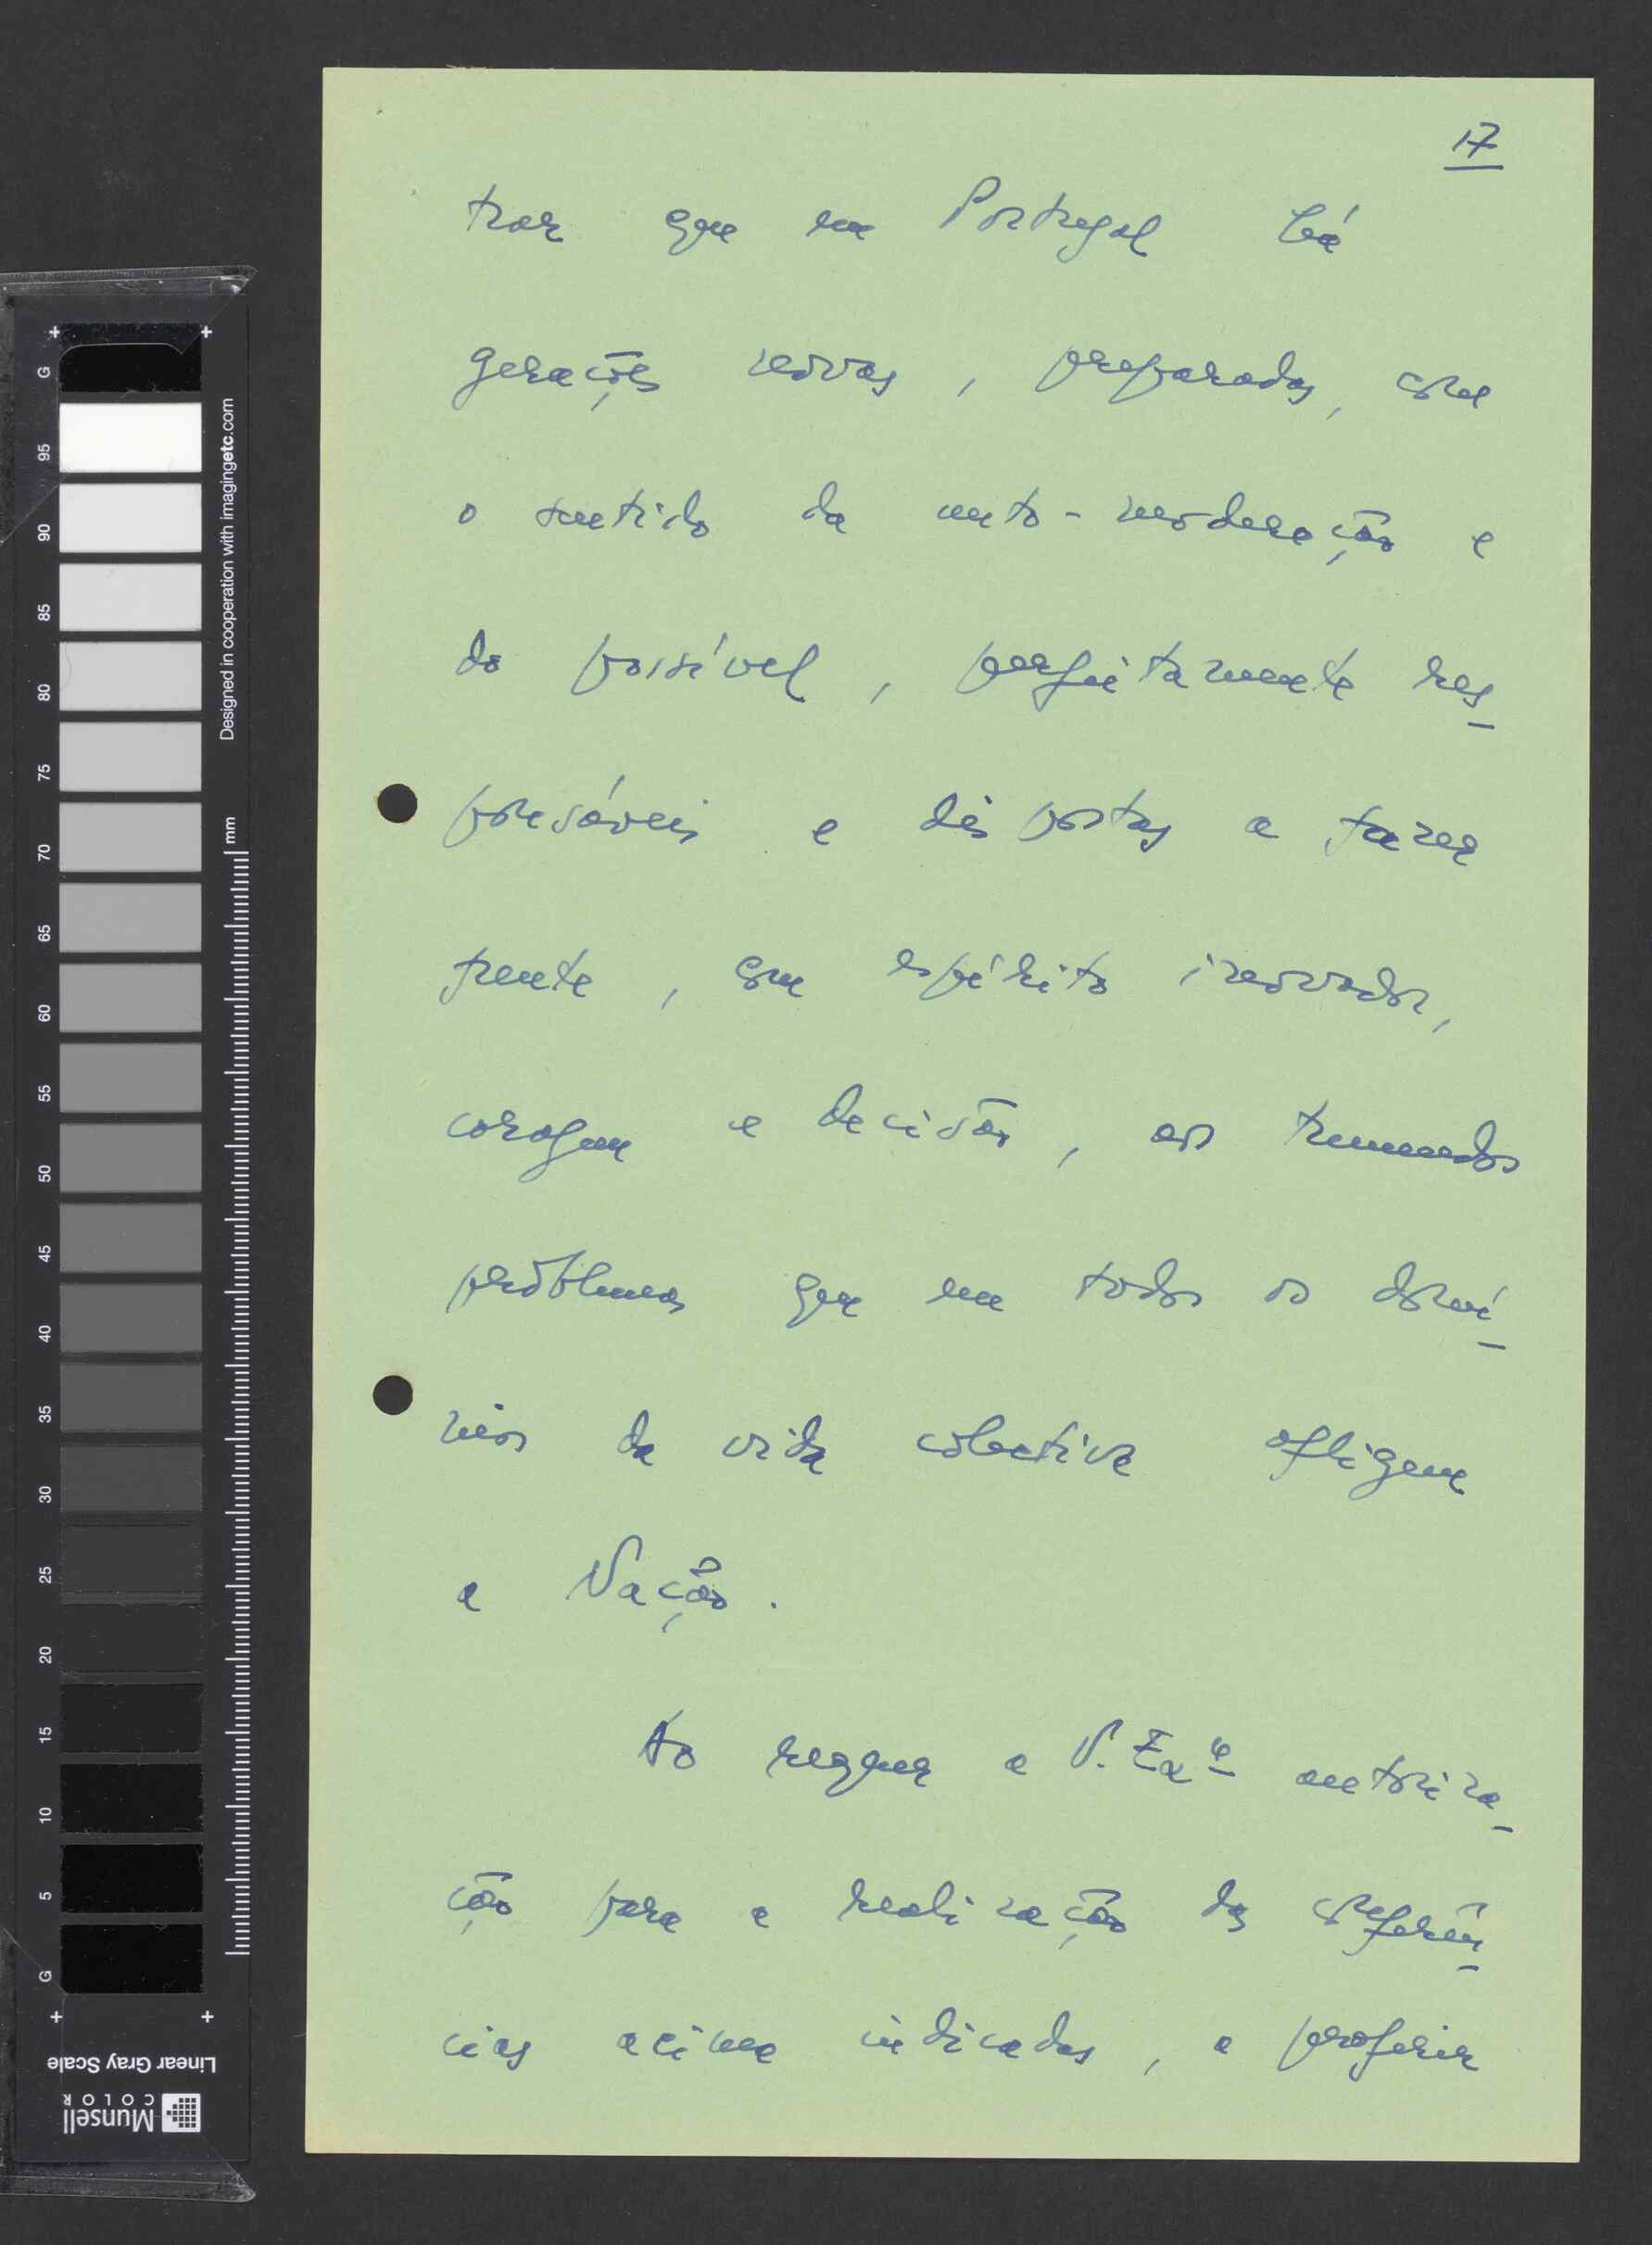 17
trar que em Portugal há
gerações novas, preparadas, com
o sentido da auto-moderação e
do possível, perfeitamente res-
ponsáveis e dispostas a fazer
frente, com espírito inovador,
coragem e decisão, aos tremendos
problemas que em todos os domí-
nios da vida colectiva afligem
a Nação.
Ao requer a V. Exª autoriza-
ção para a realização das conferên-
cias acima indicadas, a proferir
G
95
90
85
80
75
70
65
60
55
50
45
40
35
30
25
20
15
10
5
G
Designed in cooperation with imagingetc.com
mm
Linear Gray Scale
Munsell
COLOR